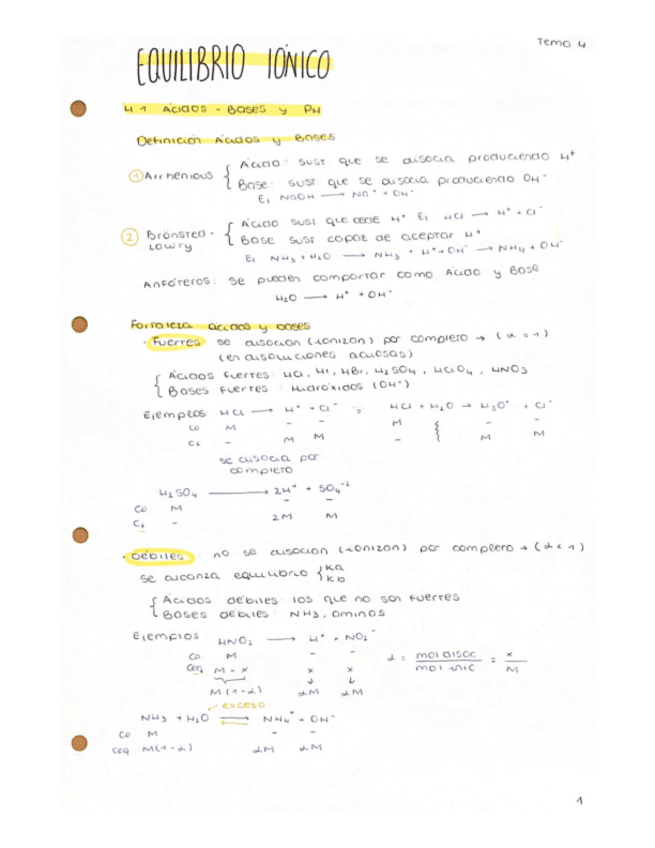 Tema 4
EQUILIBRIO IÓNICO
4.1 Ácidos - Bases y PH
Definición Ácidos y Bases
① Arrhenious { Ácido: sust que se disocia produciendo H⁺
Base: sust que se disocia produciendo OH⁻
Ej NaOH → Na⁺ + OH⁻
② Brönsted - Lowry { Ácido sust que cede H⁺ Ej HCl → H⁺ + Cl⁻
Base sust capat de aceptar H⁺
Ej NH3 + H2O → NH3 + H⁺ + OH⁻ → NH4 + OH⁻
Anfóteros: se pueden comportar como Ácido y Base
H2O → H⁺ + OH⁻
Fortaleza ácidos y bases
· Fuertes se disocian (ionizan) por completo → (α = 1)
(en disoluciones acuosas)
{ Ácidos fuertes: HCl, HI, HBr, H2SO4, HClO4, HNO3
Bases fuertes: Hidróxidos (OH⁻)
Ejemplos HCl → H⁺ + Cl⁻ = HCl + H2O → H3O⁺ + Cl⁻
Co M - - M - -
Cf - M M - M M
se disocia por
completo
H2SO4 → 2H⁺ + SO4⁻²
Co M - -
Cf - 2M M
· Débiles: no se disocian (ionizan) por completo → (α < 1)
se alcanza equilibrio { Ka
Kb
{ Ácidos débiles: los que no son fuertes
Bases débiles: NH3, aminas
Ejemplos HNO2 → H⁺ + NO2⁻
Co M - - α = mol disoc / mol inic = x / M
Ceq M - x x x
M(1-α) αM αM
exceso
NH3 + H2O ⇌ NH4⁺ + OH⁻
Co M - -
Ceq M(1-α) αM αM
1